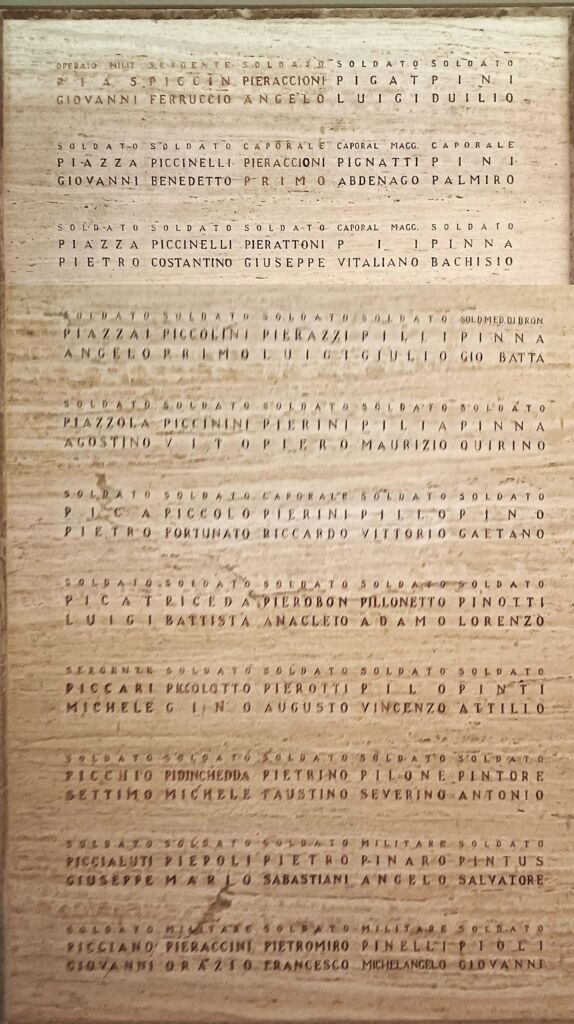 OPERAIO MILIT. SERGENTE SOLDATO SOLDATO SOLDATO
PIAS PICCIN PIERACCIONI PIGAT PINI
GIOVANNI FERRUCCIO ANGELO LUIGI DUILIO
SOLDATO SOLDATO CAPORALE CAPORAL MAGG. CAPORALE
PIAZZA PICCINELLI PIERACCIONI PIGNATTI PINI
GIOVANNI BENEDETTO PRIMO ABDENAGO PALMIRO
SOLDATO SOLDATO SOLDATO CAPORAL MAGG. SOLDATO
PIAZZA PICCINELLI PIERATTONI PII PINNA
PIETRO COSTANTINO GIUSEPPE VITALIANO BACHISIO
SOLDATO SOLDATO SOLDATO SOLDATO SOLD.MED.DI BRON.
PIAZZAI PICCOLINI PIERAZZI PILI PINNA
ANGELO PRIMO LUIGI GIULIO GIO BATTA
SOLDATO SOLDATO SOLDATO SOLDATO SOLDATO
PIAZZOLA PICCININI PIERINI PILIA PINNA
AGOSTINO VITO PIERO MAURIZIO QUIRINO
SOLDATO SOLDATO CAPORALE SOLDATO SOLDATO
PICA PICCOLO PIERINI PILLO PINO
PIETRO FORTUNATO RICCARDO VITTORIO GAETANO
SOLDATO SOLDATO SOLDATO SOLDATO SOLDATO
PICAT PICEDA PIEROBON PILLONETTO PINOTTI
LUIGI BATTISTA ANACLETO ADAMO LORENZO
SERGENTE SOLDATO SOLDATO SOLDATO SOLDATO
PICCARI PICOLOTTO PIEROTTI PILO PINTI
MICHELE GINO AUGUSTO VINCENZO ATTILIO
SOLDATO SOLDATO SOLDATO SOLDATO SOLDATO
PICCHIO PIDINCHEDDA PIETRINO PILONE PINTORE
SETTIMO MICHELE FAUSTINO SEVERINO ANTONIO
SOLDATO SOLDATO SOLDATO MILITARE SOLDATO
PICCIALUTI PIEPOLI PIETRO PINARO PINTUS
GIUSEPPE MARIO SABASTIANI ANGELO SALVATORE
SOLDATO MILITARE SOLDATO MILITARE SOLDATO
PICCIANO PIERACCINI PIETROMIRO PINELLI PIOLI
GIOVANNI ORAZIO FRANCESCO MICHELANGELO GIOVANNI